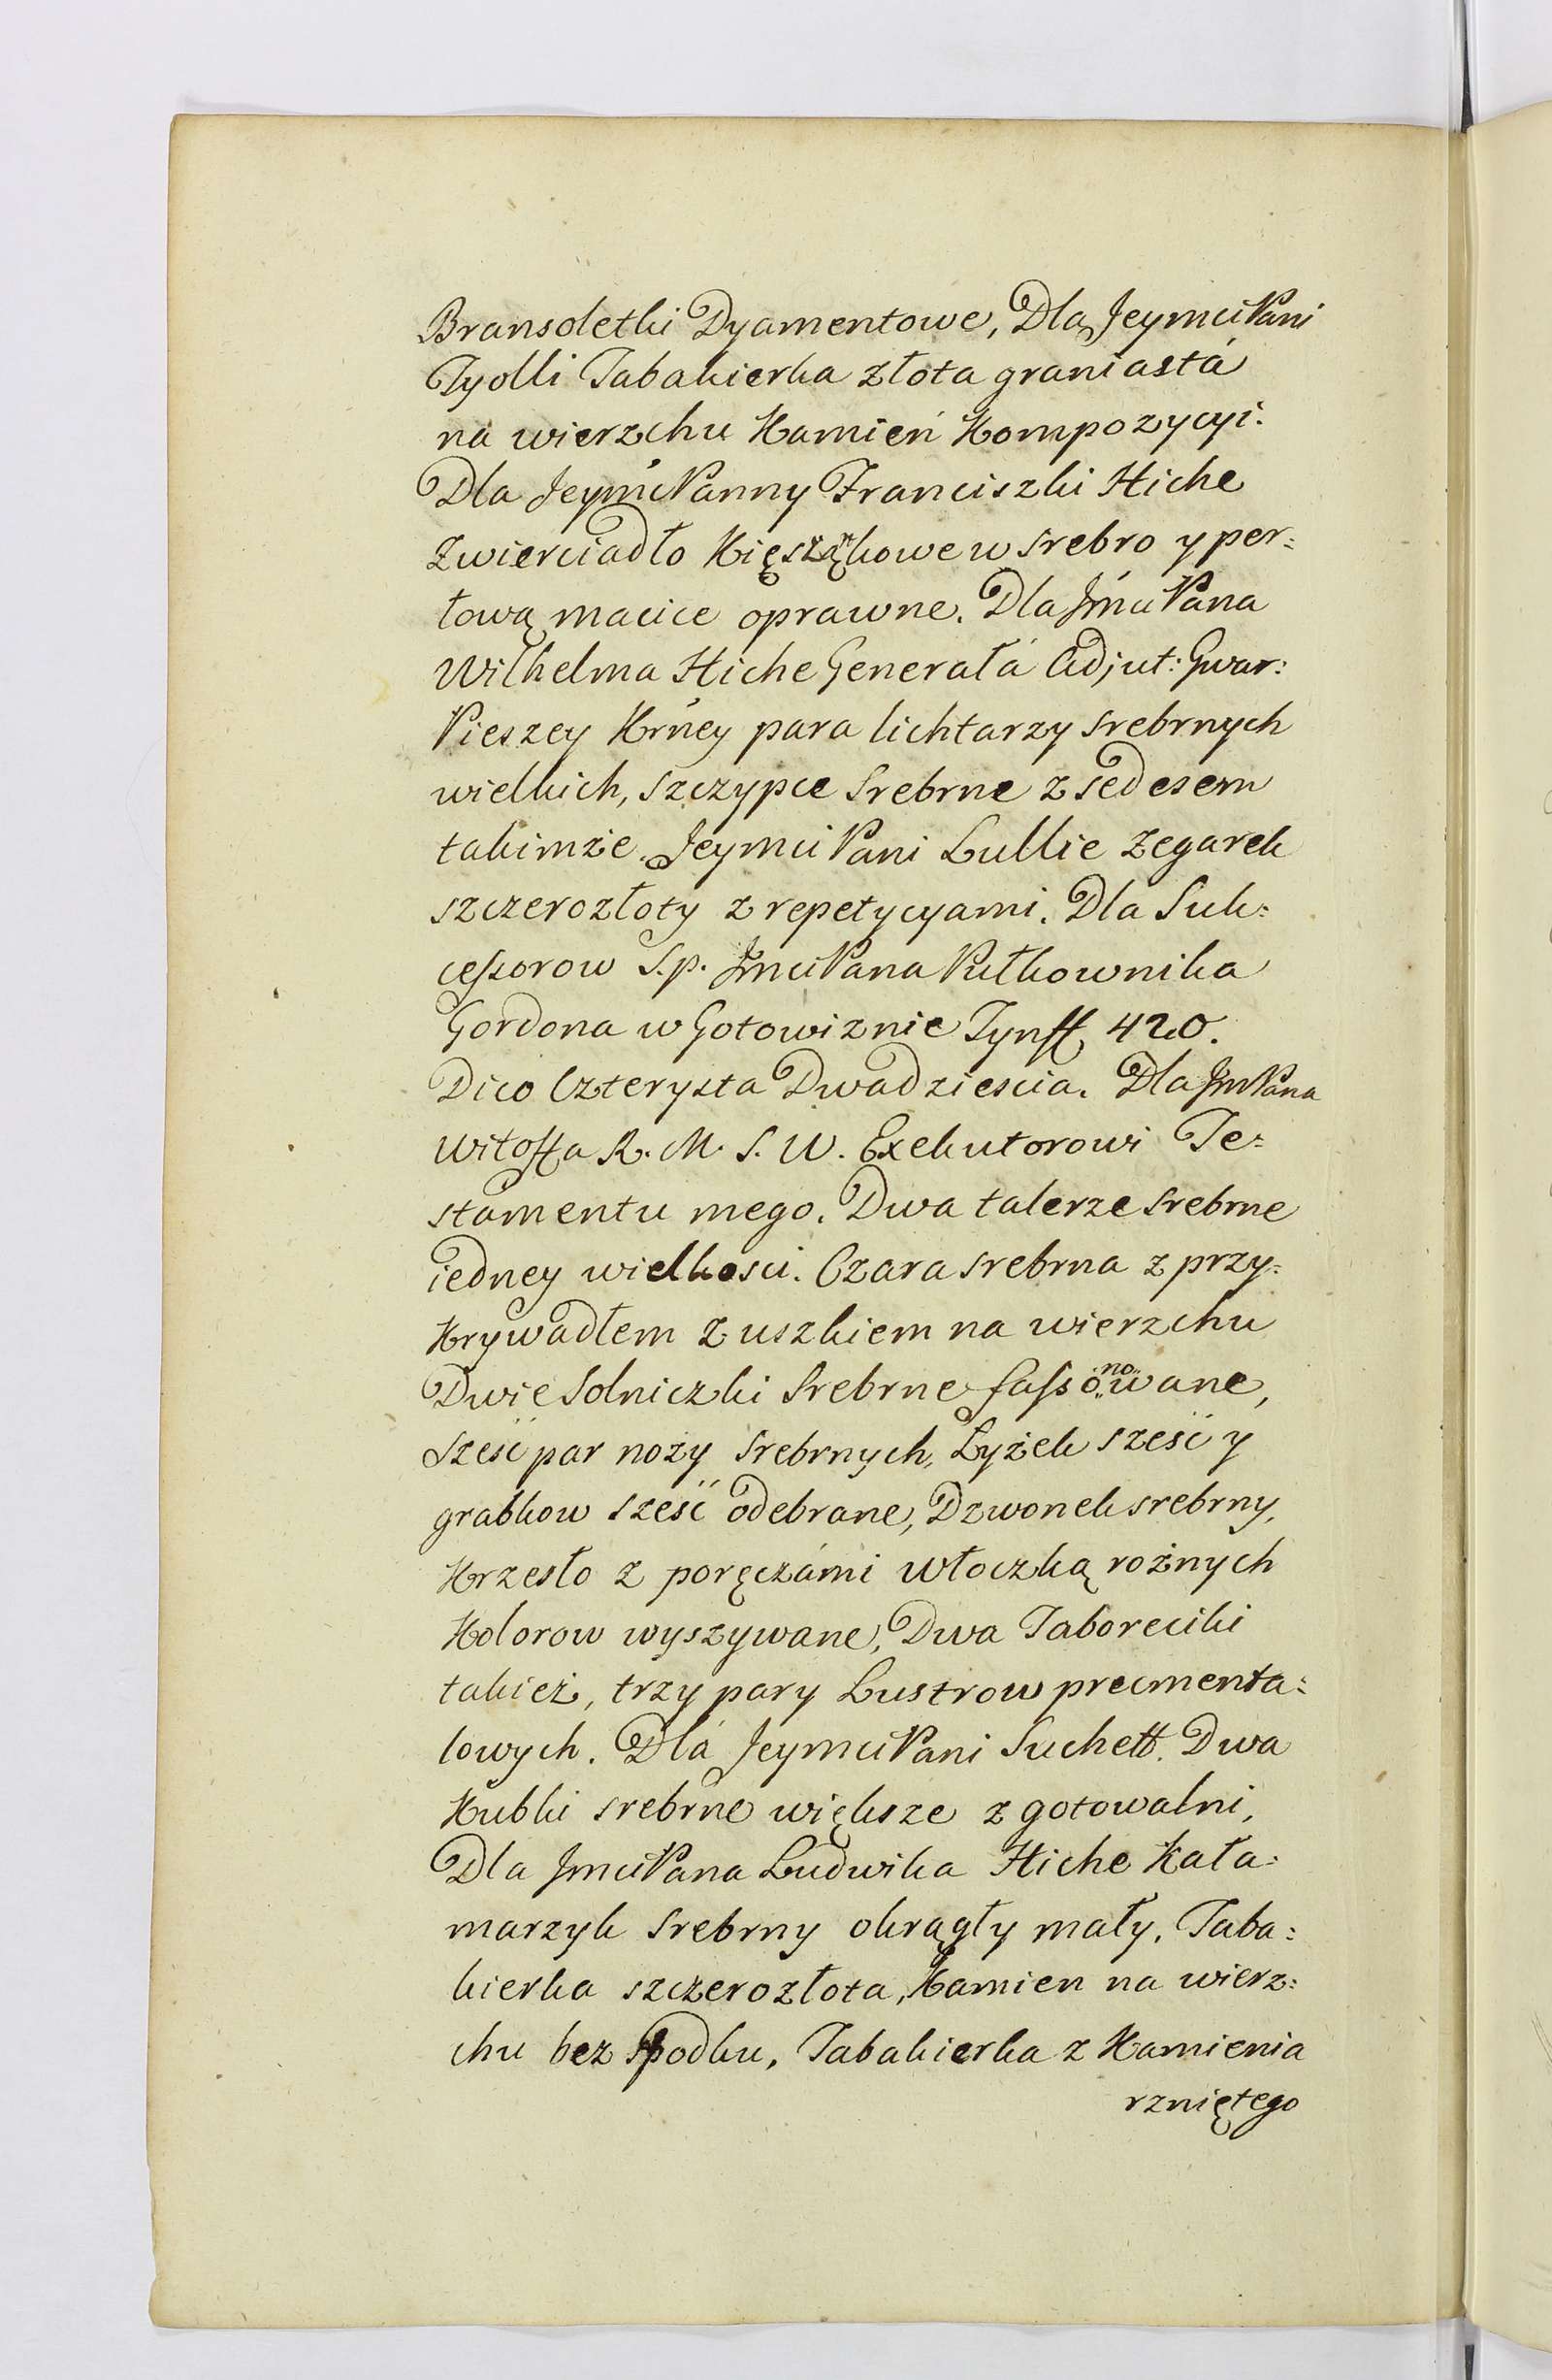 Bransoletki Dyamentowe, Dla Jeymci Pani
Tyolli Tabakierka złota graniastá
na wierzchu Kamień Kompozycyi.
Dla Jeymci Panny Franciszki Hiche
Zwierciadło Kięsząkowe w srebro y per=
tową macice oprawne. Dla Jmci Pana
Wilhelma Hiche Generałá Adjut: Gwar:
Pieszey Krney para lichtarzy srebrnych
wielkich, szczypce srebrne z sedesem
takimże. Jeymci Pani Lullie Zegarek
szczerozłoty z repetycyami. Dla Suk=
cessorow S.p. Jmci Pana Pułkownika
Gordona w Gotowiznie Tynff 420.
Dico Czterysta Dwadziescia. Dla Jm Pana
Witoffa R. M. S. W. Exekutorowi Te=
stamentu mego. Dwa talerze srebrne
iedney wielkosci. Czara srebrna z przy=
Krywadłem z uszkiem na wierzchu
Dwie Solniczki Srebrne fassonowane,
Sześć par noży srebrnych, Łyżek sześć y
grabkow sześć odebrane, Dzwonek srebrny,
Krzesło z poręczámi włoczką rożnych
Kolorow wyszywane, Dwa Taboreciki
takież, trzy pary Lustrow precmenta=
lowych. Dlá Jeymci Pani Suchett. Dwa
Kubki srebrne większe z gotowalni,
Dla Jmci Pana Ludwika Hiche Kała=
marzyk srebrny okrągły mały. Taba=
kierka szczerozłota, Kamien na wierz=
chu bez spodku, Tabakierka z Kamienia
rzniętego